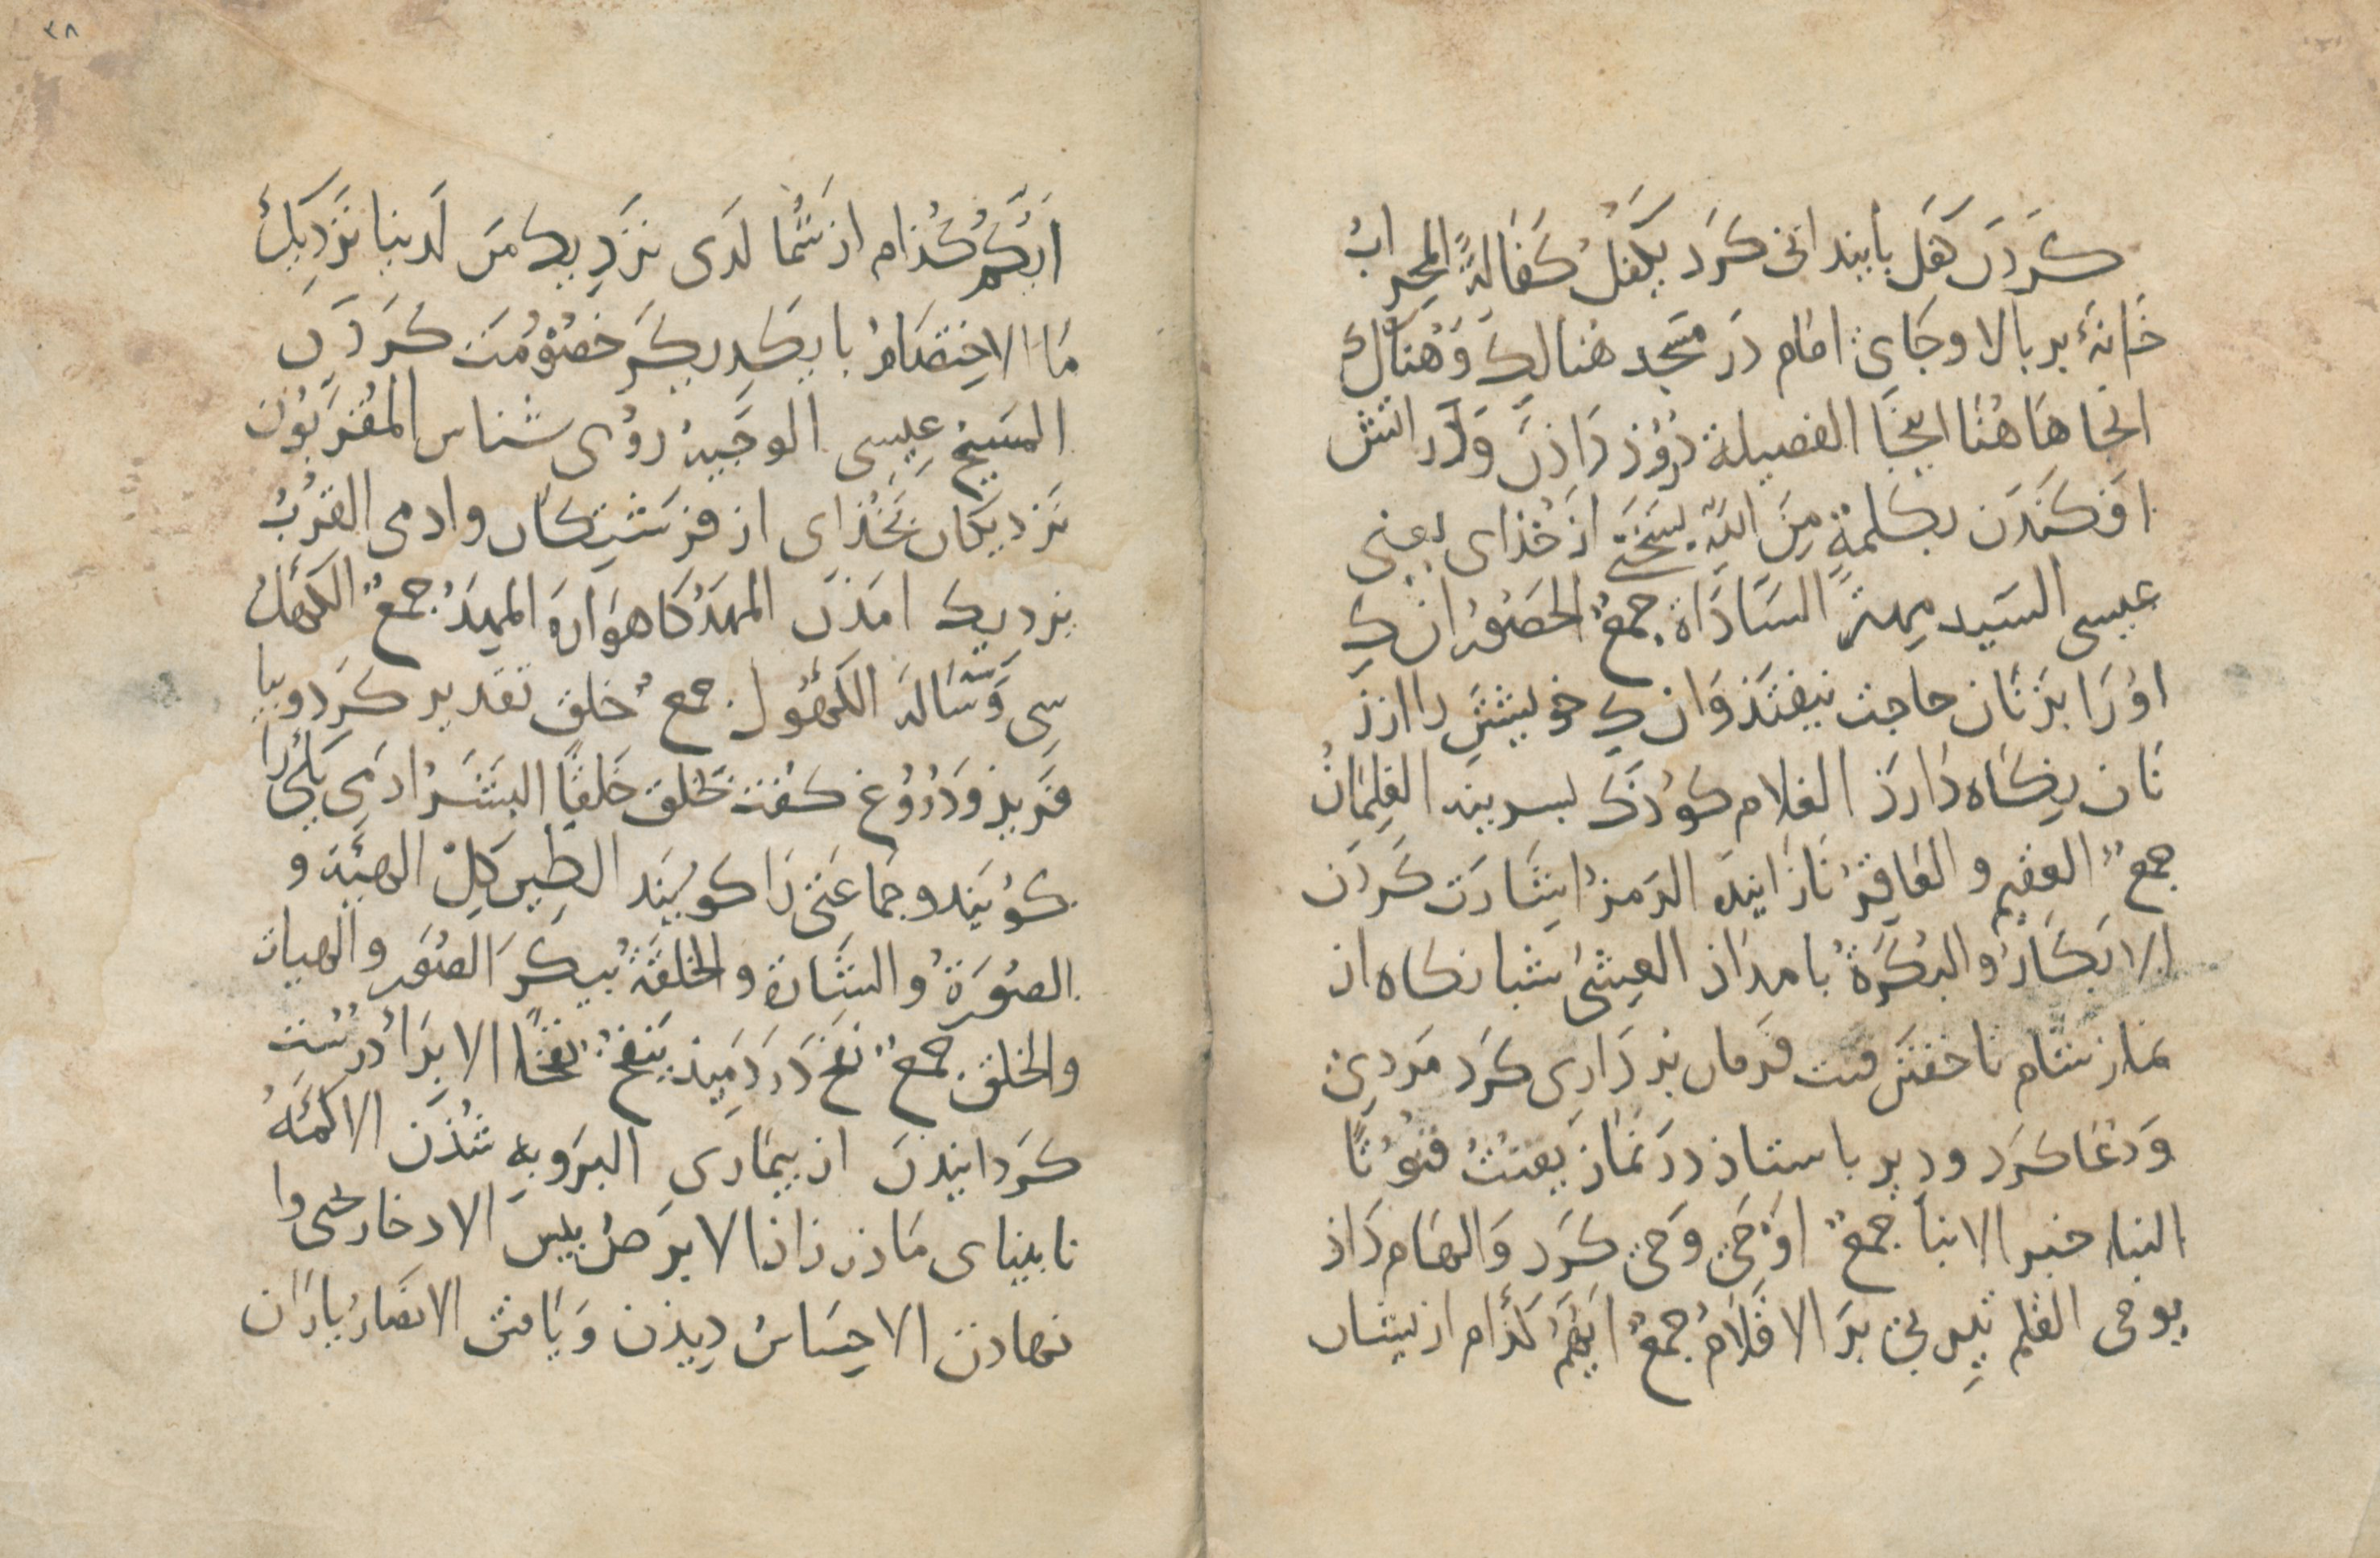 کَردَن کَفَل بایندانی کرَد یَکفَلُ کَفَالَةً المحرابُ
خَانَۀ بر بالا و جَایِ امَام دَر مَسجد هُنالِکَ وَ هُنَاکَ
انجا هَا هُنَا اینجَا الفصیلة دُرُوْذ دَاذَن وَ دَر اتش
افَکَندَن بکَلمَةٍ مِنَ اللهِ بسَخَنی از خُذای یعنی
عیسی السَید مِهتَر السَادَاة جمعٌ الحَصُوْر ان کِ
اوْرَا بَزَنَان حاجت نیفتَذ وَ ان کِ خویشتَن را از
زَنَان نِکَاه دَارَذ الغلام کوْذَک بسرینه الغِلمَانُ
جمعٌ العقیم و العَاقِرُ نَازَاینده الرَمزُ اِشَارَت کَردَن
الابکَارُ و البُکرَةُ بامدَاذ العِشیُ شبانکاه از
نماز شَام تا خفتَن قنت فَرمان بَردَاری کرَد مَر دین
وَ دُعَا کرَد و دیر باستاذ در نَمَاز یَقنُتُ قنُوْتًا
النبا خبر الانبآ جمعٌ اوْحَی وَحی کَرَد وَ الهَام دَاذ
یوحی القلم تیر بی بَر الاقلامُ جمعٌ ایُّهُم کَذَام از یشان
۳۸
ایُّکُم کُذام از شُمَا لَدَی نزَدِیک مَن لَدینا نَزدِیکِ
مَا الاِختِصَامُ با یَکَدِیکَر خصُوْمَت کَردَن
المَسِیحُ عِیسی الوَجِیهُ روْی شناس المُقَرَبُوْن
نَزدیکَان بخُذای از فرشتِکَان و ادمی القُرْبُ
نزدیک امَذَن المَهْدُ کَاهوَارَه المهدُ جمعٌ الکَهلُ
سِی وَ سَه سَالَه الکهُوْل جمعٌ خلق تقدیر کَرَد و بیا
فَریذ وَ دُرُوْغ کفت یَخلُق خَلقًا البَشَرُ ادمی یَکی را
کوْیَند و جَمَاعَتی رَا کوْیَند الطِین کِل الهیئَة و
الصُوْرَةُ و الشَارة و الخلقَةُ پیکر الصُوَر و الهیات
و الخلق جمعٌ نفخ دَردَمِیذ یَنفُخُ نَفخًا الابرَاءُ درُست
کَردَانِیدَن از بیمَارِی البَروبِه شُذَن الاکمَهُ
نابینای مَاذَر زَاذ الابرَصُ بیس الادخار یخی وا
نهادن الاحِسَاسُ دِیذَن وَ یَافتَن الانصَارُ یارَان